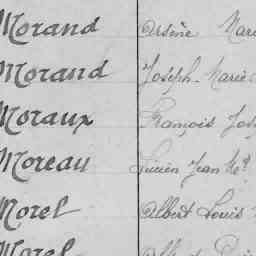 Morand Arsène Marie
Morand Joseph-Marie
Moraux François Jos
Moreau Lucien Jean Mie
Morel Albert Louis
Morel